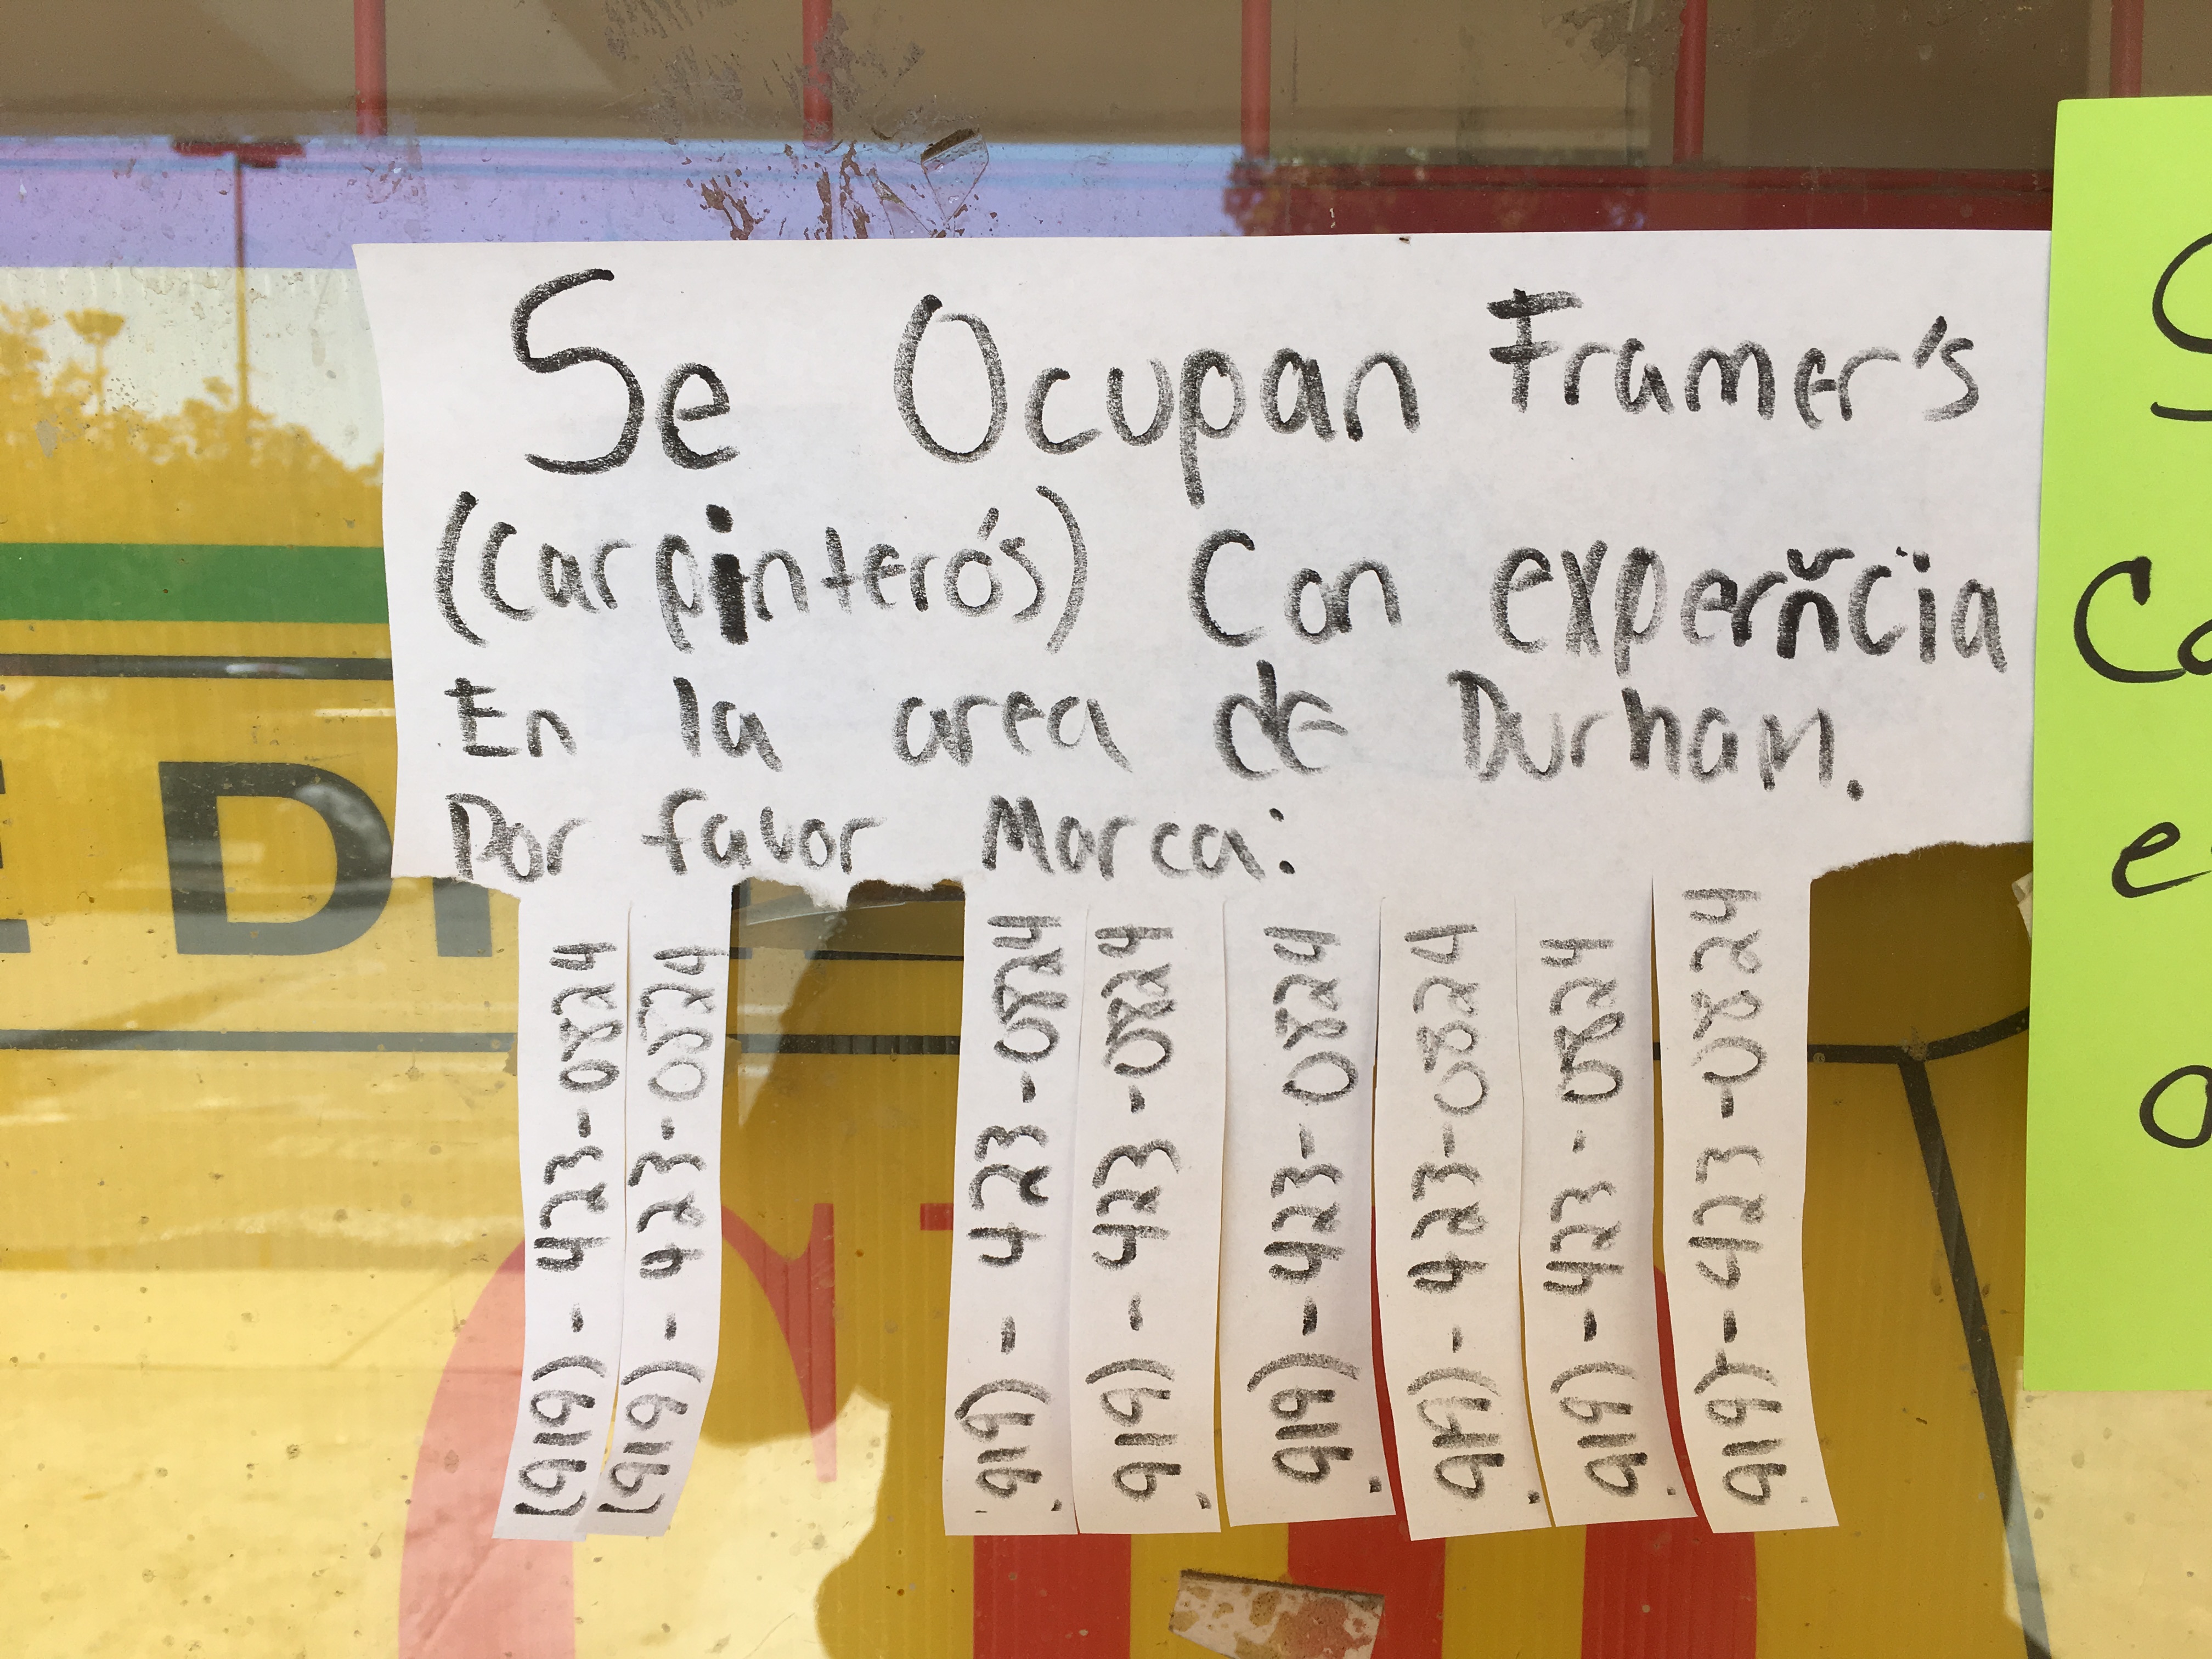 Se Ocupan Framer's
(Carpintero's) Con experñcia
En la area de Durham.
Por favor Marca:
(919) - 423-0824
(919) - 423-0824
919) - 423-0824
919) - 423-0824
919) - 423-0824
919) - 423-0824
919) - 423-0824
919) - 423-0824